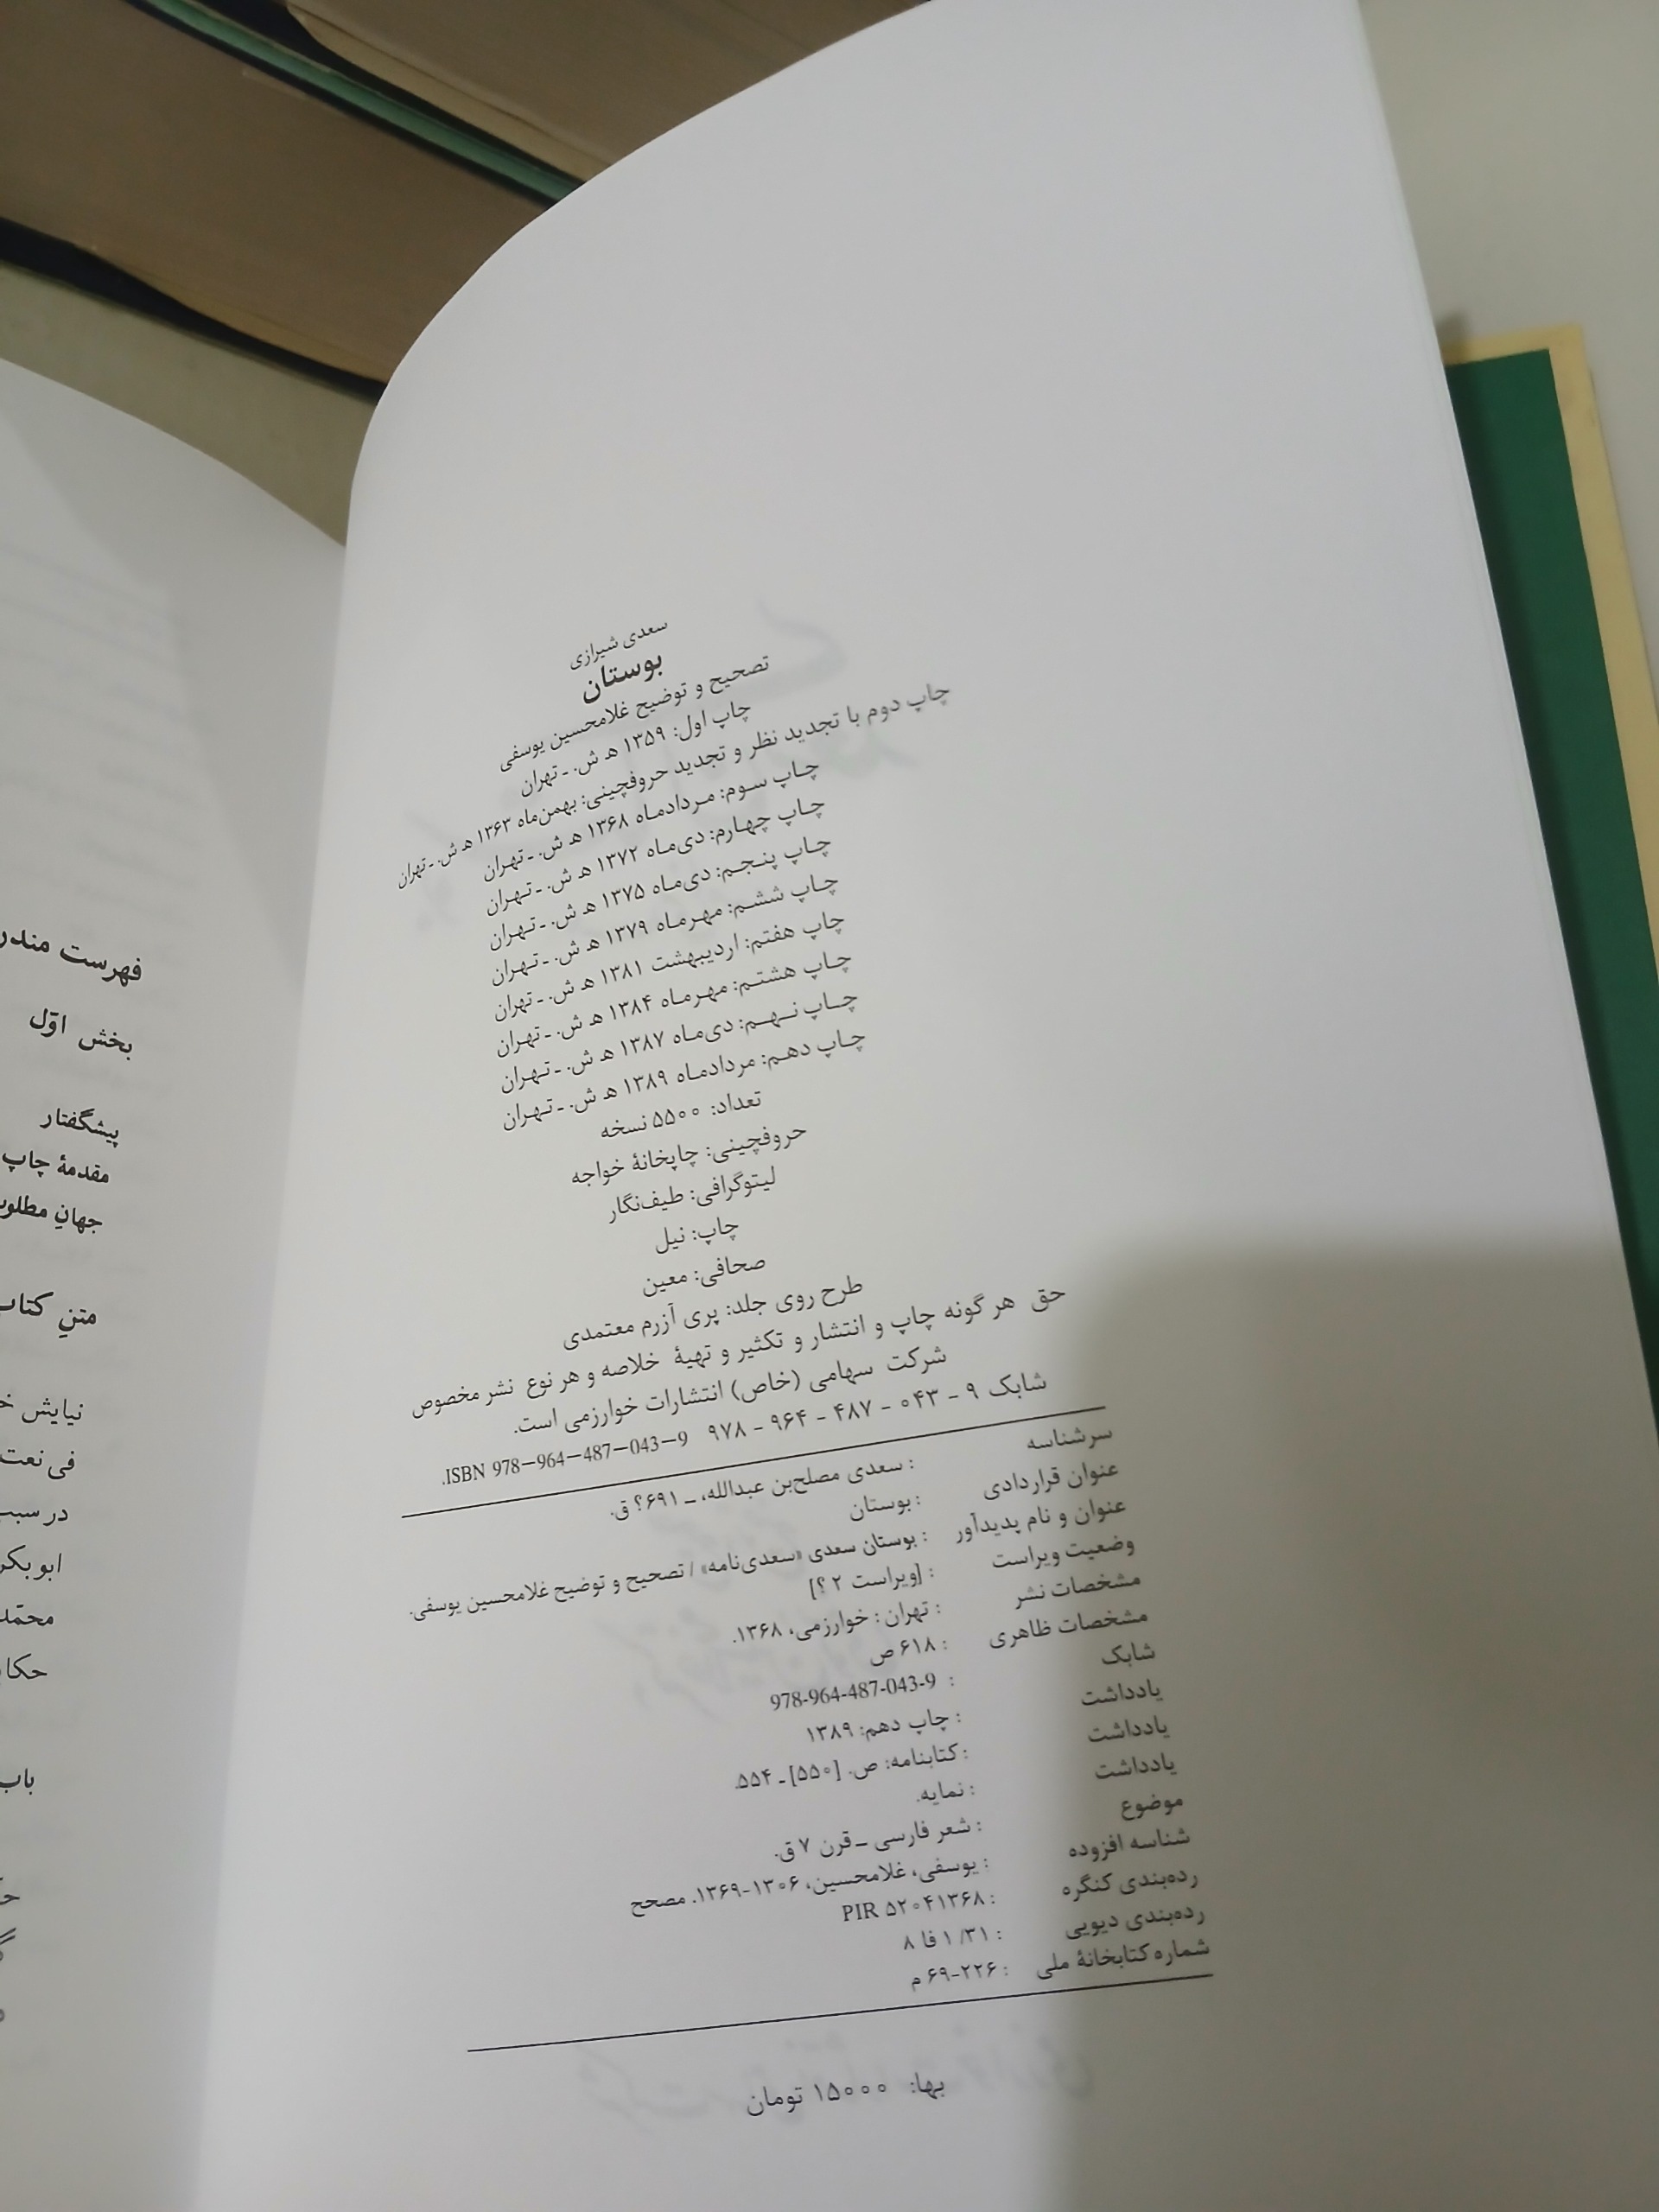 سعدی شیرازی
بوستان
تصحیح و توضیح غلامحسین یوسفی
چاپ اول: ۱۳۵۹ ه‍ ش. ـ تهران
چاپ دوم با تجدید نظر و تجدید حروفچینی: بهمن‌ماه ۱۳۶۳ ه‍ ش. ـ تهران
چاپ سوم: مردادماه ۱۳۶۸ ه‍ ش. ـ تهران
چاپ چهارم: دی‌ماه ۱۳۷۲ ه‍ ش. ـ تهران
چاپ پنجم: دی‌ماه ۱۳۷۵ ه‍ ش. ـ تهران
چاپ ششم: مهرماه ۱۳۷۹ ه‍ ش. ـ تهران
چاپ هفتم: اردیبهشت ۱۳۸۱ ه‍ ش. ـ تهران
چاپ هشتم: مهرماه ۱۳۸۴ ه‍ ش. ـ تهران
چاپ نهم: دی‌ماه ۱۳۸۷ ه‍ ش. ـ تهران
چاپ دهم: مردادماه ۱۳۸۹ ه‍ ش. ـ تهران
تعداد: ۵۵۰۰ نسخه
حروفچینی: چاپخانهٔ خواجه
لیتوگرافی: طیف‌نگار
چاپ: نیل
صحافی: معین
طرح روی جلد: پری آزرم معتمدی
حق هر گونه چاپ و انتشار و تکثیر و تهیهٔ خلاصه و هر نوع نشر مخصوص
شرکت سهامی (خاص) انتشارات خوارزمی است.
شابک ۹ - ۰۴۳ - ۴۸۷ - ۹۶۴ - ۹۷۸ ISBN 978-964-487-043-9.
سرشناسه : سعدی مصلح‌بن عبدالله، ـ ۶۹۱؟ ق.
عنوان قراردادی : بوستان
عنوان و نام پدیدآور : بوستان سعدی «سعدی‌نامه» / تصحیح و توضیح غلامحسین یوسفی.
وضعیت ویراست : [ویراست ۲ ؟]
مشخصات نشر : تهران : خوارزمی، ۱۳۶۸.
مشخصات ظاهری : ۶۱۸ ص
شابک : 978-964-487-043-9
یادداشت : چاپ دهم: ۱۳۸۹
یادداشت : کتابنامه: ص. [۵۵۰] ـ ۵۵۴.
یادداشت : نمایه.
موضوع : شعر فارسی ـ قرن ۷ ق.
شناسه افزوده : یوسفی، غلامحسین، ۱۳۰۶-۱۳۶۹. مصحح
رده‌بندی کنگره : PIR ۵۲۰۴۱۳۶۸
رده‌بندی دیویی : ۱/۳۱ فا ۸
شماره کتابخانهٔ ملی : ۲۲۶-۶۹ م
بها: ۱۵۰۰۰ تومان
فهرست
بخش اوّل
پیشگفتار
مقدمهٔ چاپ
جهانِ
متنِ
نیایش
فی نعت
در
ابوبکر
باب